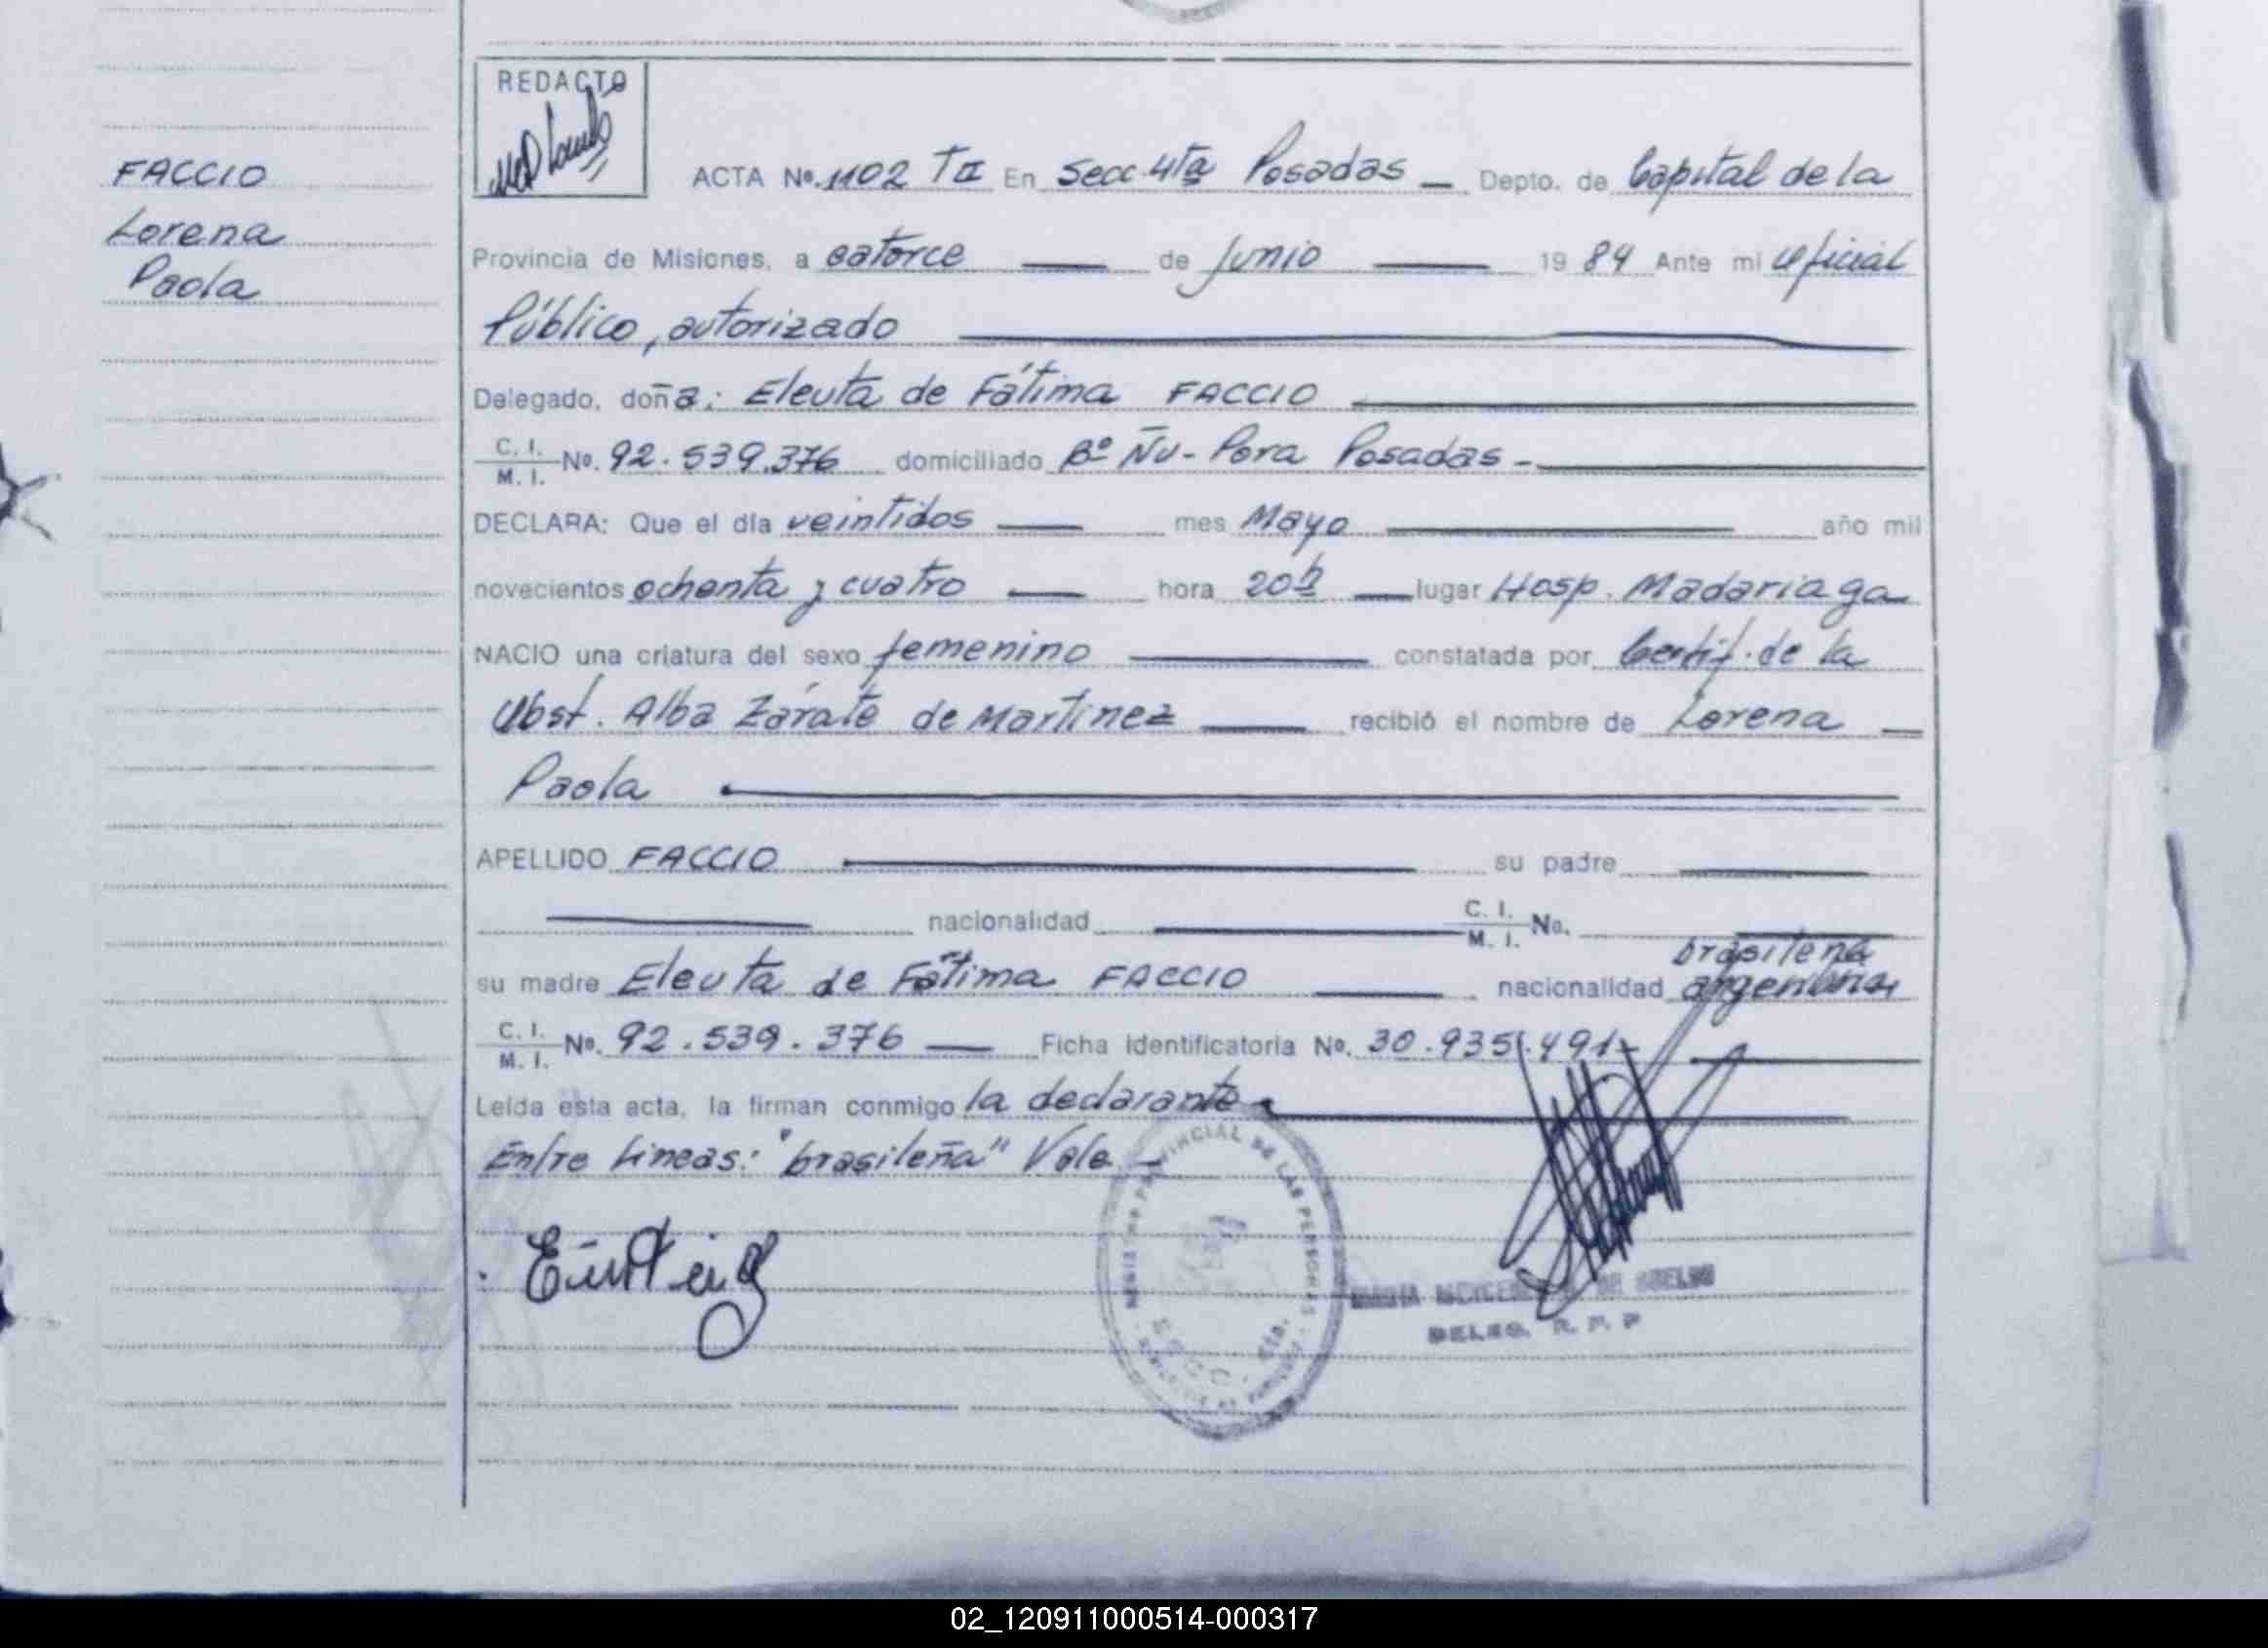 REDACTO
FACCIO
Lorena
Paola
ACTA Nº. 1102 TII En Secc. 4ta Posadas — Depto. de Capital de la
Provincia de Misiones, a catorce — de Junio — 19 84 Ante mi Oficial
Público, autorizado
Delegado, doña: Eleuta de Fátima FACCIO
C. I. M. I. Nº. 92.539.376 domiciliado Bº Ñu-Pora Posadas -
DECLARA: Que el día veintidos — mes Mayo — año mil
novecientos ochenta y cuatro — hora 20h — lugar Hosp. Madariaga
NACIO una criatura del sexo femenino — constatada por Certif. de la
Obst. Alba Zárate de Martinez — recibió el nombre de Lorena —
Paola
APELLIDO FACCIO — su padre —
— nacionalidad — C. I. M. I. No. —
brasileña
su madre Eleuta de Fátima FACCIO — nacionalidad argentina
C. I. M. I. Nº. 92.539.376 — Ficha Identificatoria Nº. 30.935.491-
Leída esta acta, la firman conmigo la declarante
Entre Lineas: "brasileña" Vale —
PROVINCIAL DE LAS PERSONAS
DE
DELEG. R. P. P
02_120911000514-000317